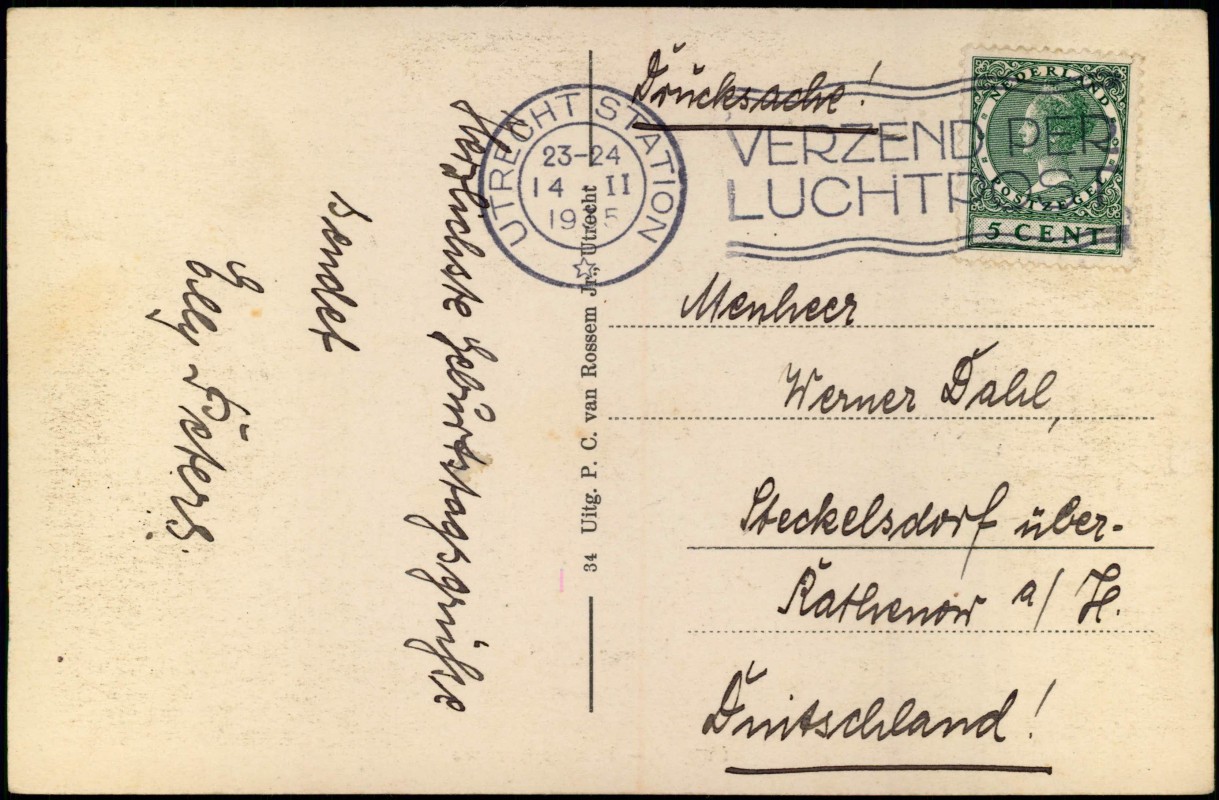 Herzlichste Geburtstagsgrüße
sendet
Elly Peters.
34 Uitg. P. C. van Rossem Jr., Utrecht
UTRECHT STATION
23-24
14 II
19 5
VERZEND PER
LUCHTPOST
NEDERLAND
POSTZEGEL
5 CENT
Drucksache!
Menheer
Werner Dahl,
Steckelsdorf über-
Rathenow a/H.
Duitschland!